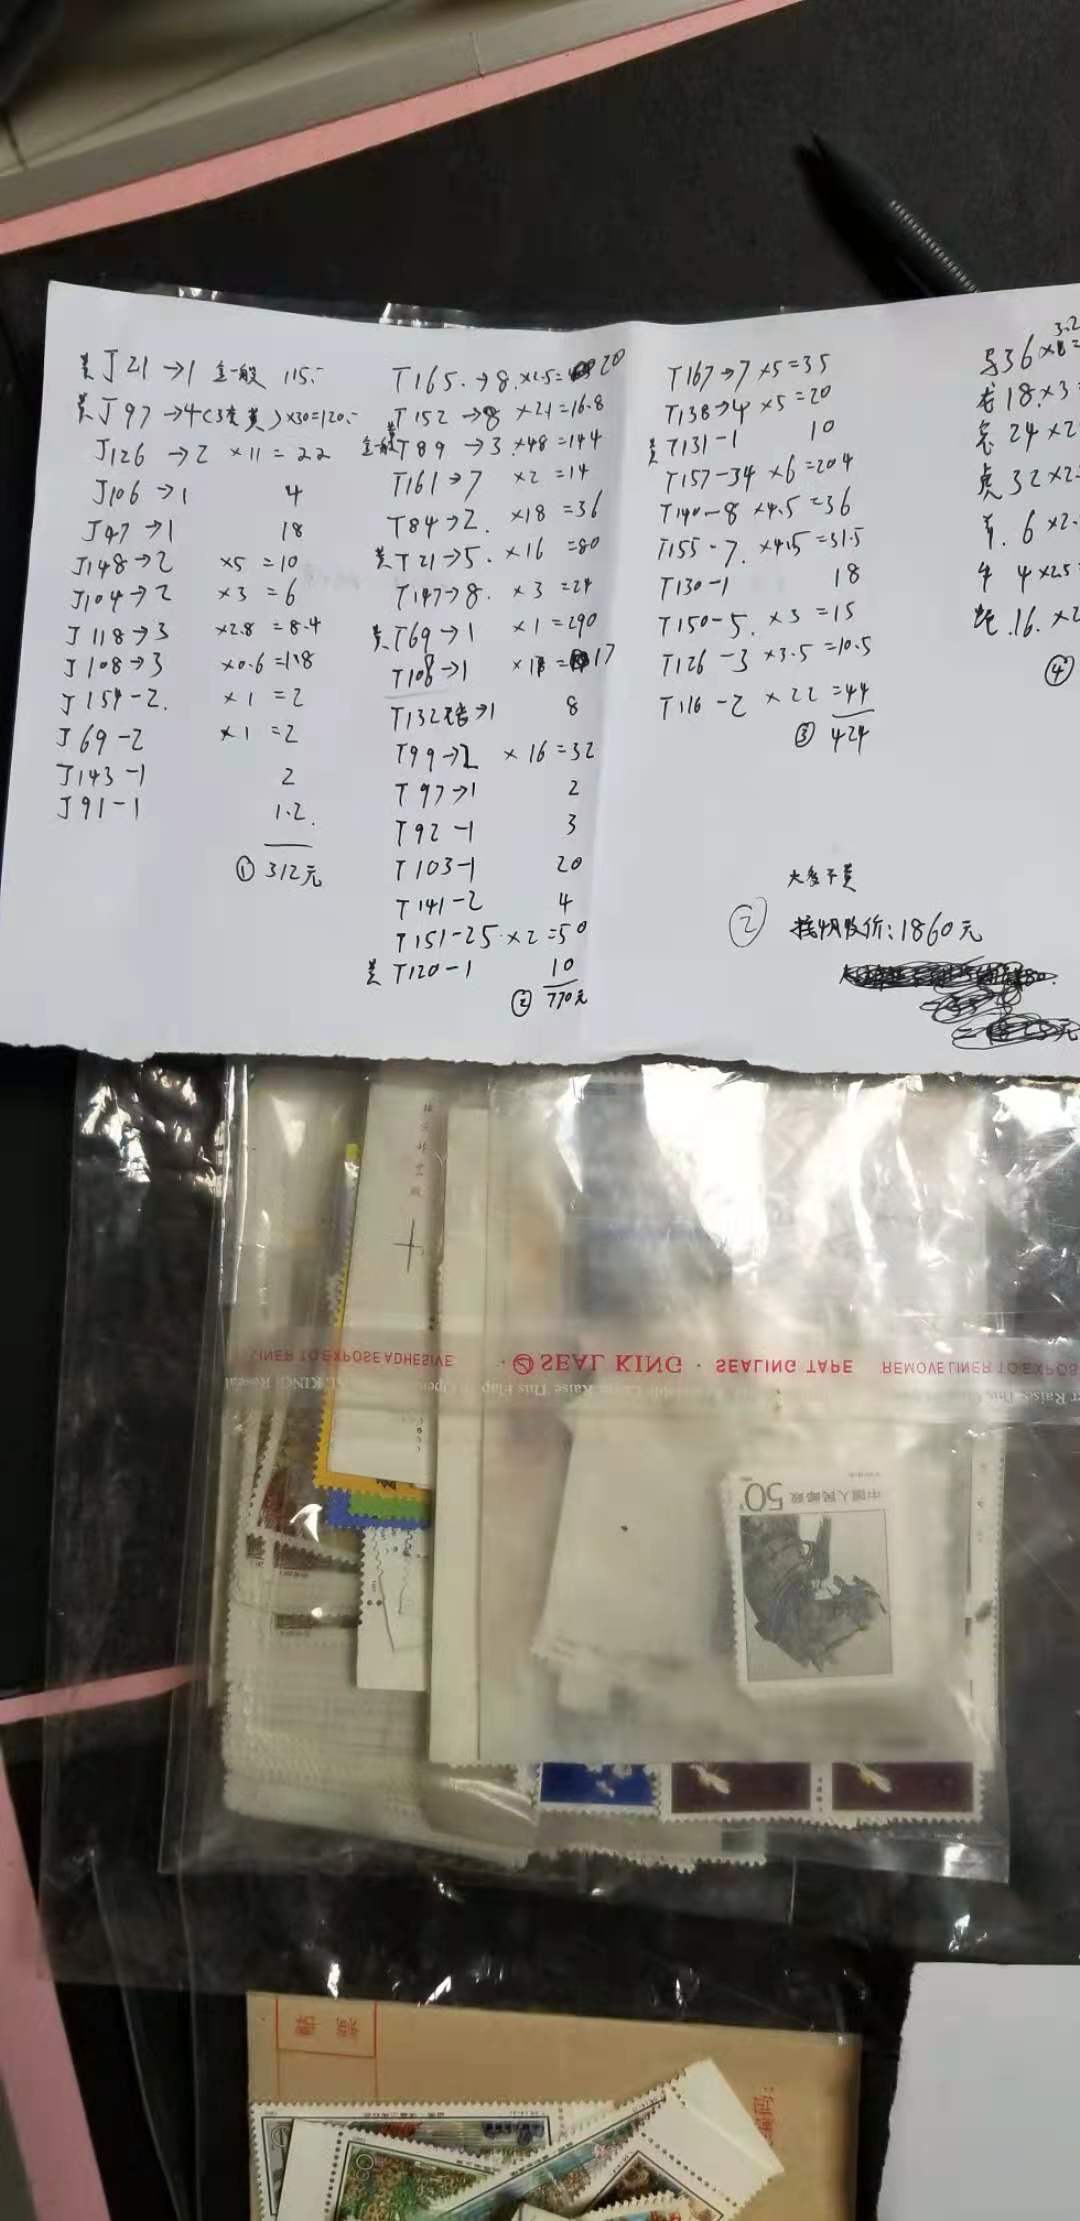 黄 J21→1 全一般 115.-
黄 J97→4(3套黄)×30=120.-
J126→2 ×11=22
J106→1 4
J47→1 18
J148→2 ×5=10
J104→2 ×3=6
J118→3 ×2.8=8.4
J108→3 ×0.6=1.8
J154-2. ×1=2
J69-2 ×1=2
J143-1 2
J91-1 1.2.
① 312元
T165.→8.×2.5= 20
黄 T152→8 ×2.1=16.8
全一般 T89→3.×48=144
T161→7 ×2=14
T84→2. ×18=36
黄 T21→5. ×16=80
T147→8. ×3=24
黄.T69→1 ×1=290
T108→1 17
T132 →1 8
T99→2 ×16=32
T97→1 2
T92-1 3
T103-1 20
T141-2 4
T151-25.×2=50
黄 T120-1 10
② 770元
T167→7×5=35
T138→4×5=20
黄 T131-1 10
T157-34×6=204
T140-8×4.5=36
T155-7.×4.5=31.5
T130-1 18
T150-5.×3=15
T126-3×3.5=10.5
T116-2×22=44
③ 424
36×
3.2
龙18.×3=
24×2
虎32×2.
羊.6×2.
牛 4×2.5=
蛇.16.×2
④
大多不黄
② 按明收价:1860元
LINER TO EXPOSE ADHESIVE
· SEAL KING · SEALING TAPE REMOVE LINER TO EXPOS
50
中国人民邮政
邮票